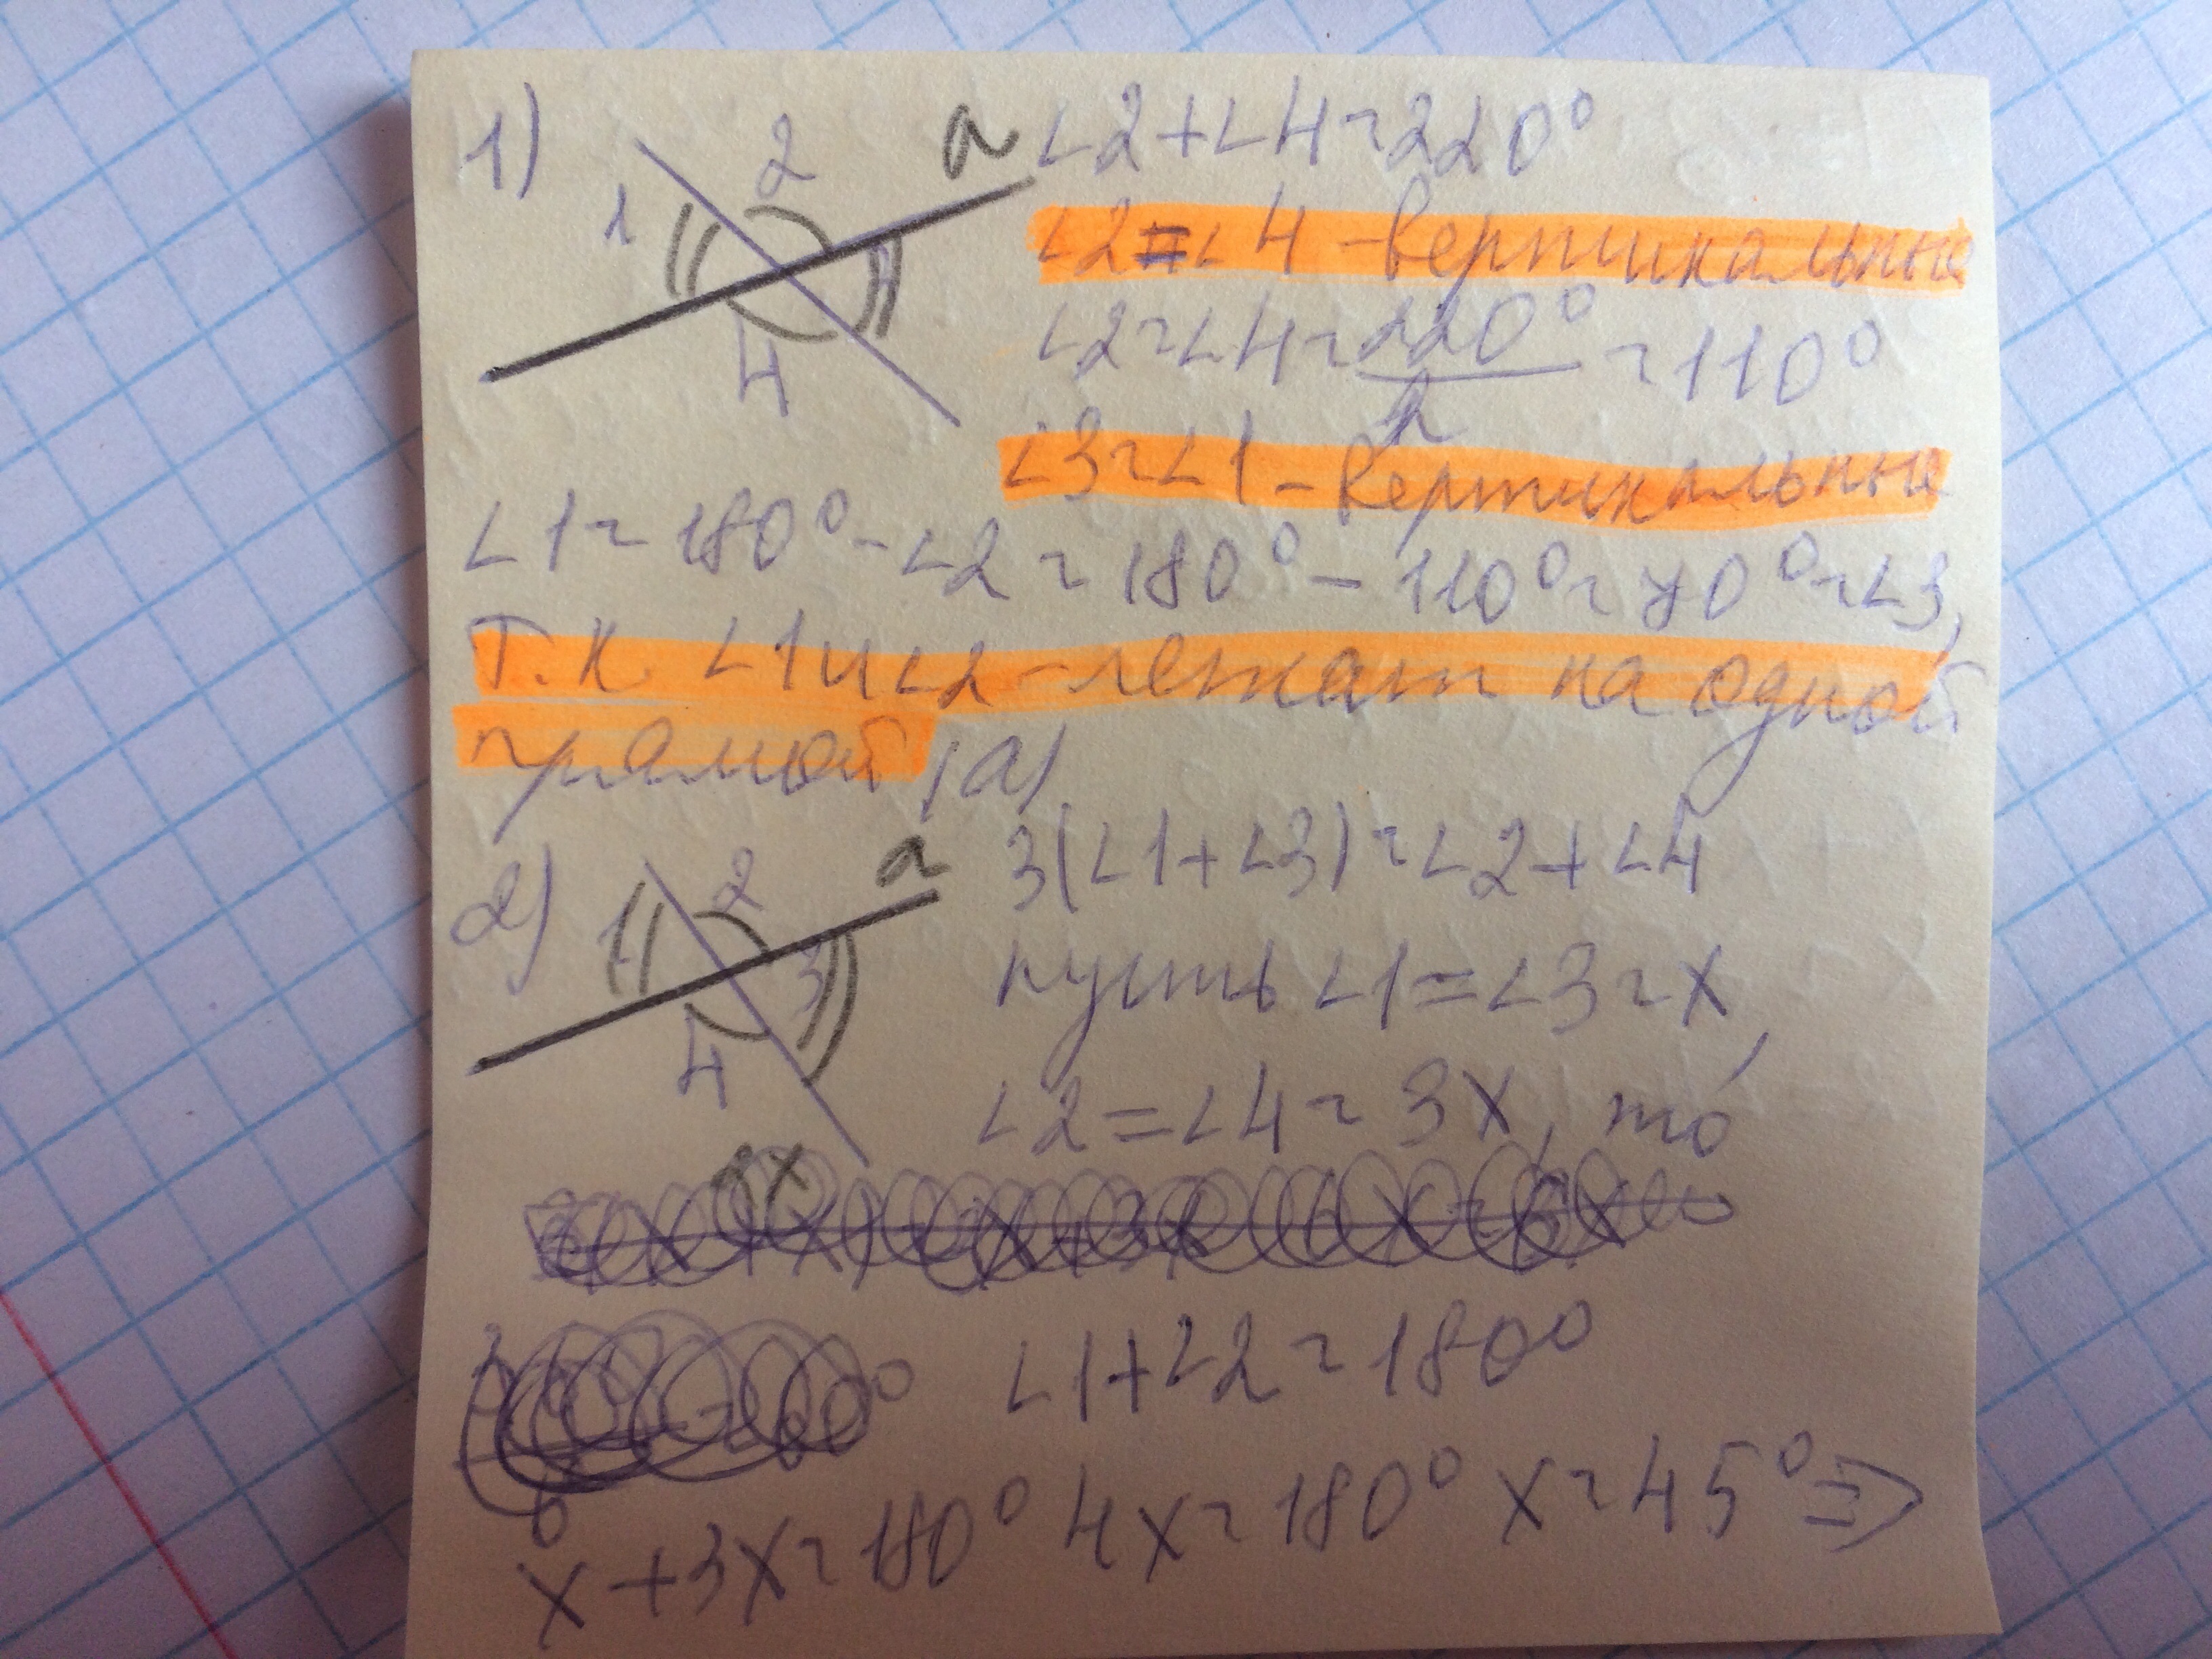 1)
1 2 a
4
∠2+∠4=220°
∠2=∠4 -вертикальные
∠2=∠4=220°/2=110°
∠3=∠1-вертикальные
∠1=180°-∠2=180°-110°=70°=∠3,
т.к. ∠1и∠2-лежат на одной
прямой (а)
2)
1 2 a
3
4
3(∠1+∠3)=∠2+∠4
пусть ∠1=∠3=x,
∠2=∠4=3x, то
∠1+∠2=180°
x+3x=180° 4x=180° x=45°⇒